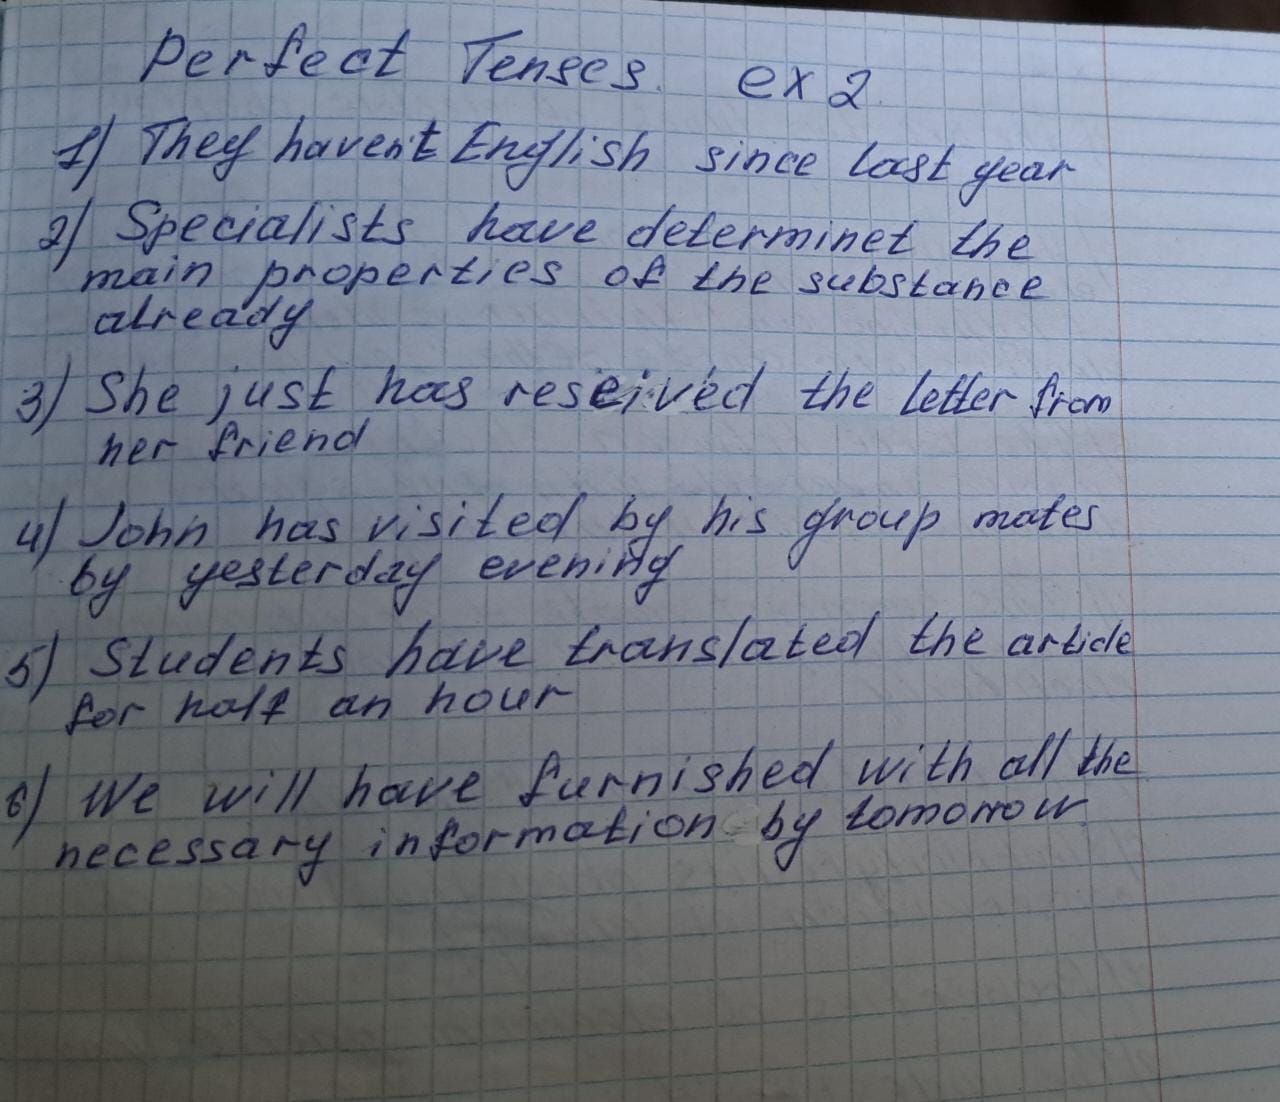 Perfect Tenses. ex 2.
1) They haven't English since last year
2) Specialists have determinet the
main properties of the substance
already
3) She just has reseived the letter from
her friend
4) John has visited by his group mates
by yesterday evening
5) Students have translated the article
for half an hour
6) We will have furnished with all the
necessary information by tomorrow.